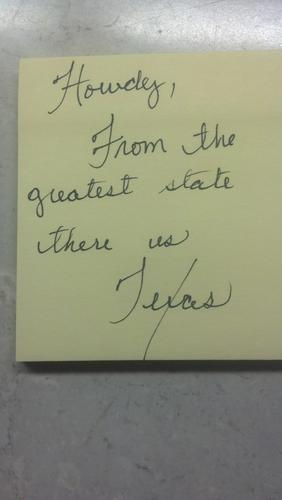 Howdy,
From the
greatest state
there is
Texas